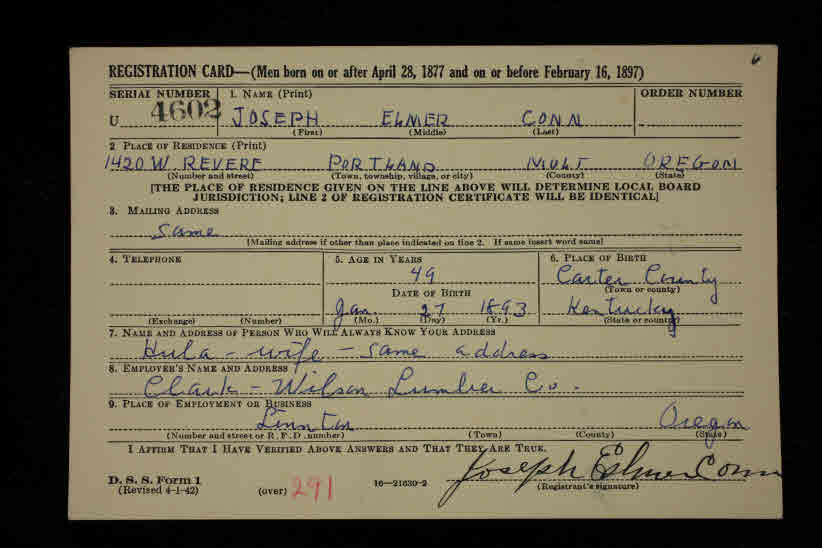 6
REGISTRATION CARD—(Men born on or after April 28, 1877 and on or before February 16, 1897)
SERIAL NUMBER 1. NAME (Print) ORDER NUMBER
U 4602 JOSEPH ELMER CONN
(First) (Middle) (Last)
2 PLACE OF RESIDENCE (Print)
1420 W. REVERE PORTLAND MULT OREGON
(Number and street) (Town, township, village, or city) (County) (State)
[THE PLACE OF RESIDENCE GIVEN ON THE LINE ABOVE WILL DETERMINE LOCAL BOARD
JURISDICTION; LINE 2 OF REGISTRATION CERTIFICATE WILL BE IDENTICAL]
3. MAILING ADDRESS
Same
[Mailing address if other than place indicated on line 2. If same insert word same]
4. TELEPHONE 5. AGE IN YEARS 6. PLACE OF BIRTH
49 Carter County
DATE OF BIRTH (Town or county)
Jan. 27 1893 Kentucky
(Exchange) (Number) (Mo.) (Day) (Yr.) (State or country)
7. NAME AND ADDRESS OF PERSON WHO WILL ALWAYS KNOW YOUR ADDRESS
Hula - wife - same address
8. EMPLOYER'S NAME AND ADDRESS
Clark - Wilson Lumber Co.
9. PLACE OF EMPLOYMENT OR BUSINESS
Linnton Oregon
(Number and street or R. F. D. number) (Town) (County) (State)
I AFFIRM THAT I HAVE VERIFIED ABOVE ANSWERS AND THAT THEY ARE TRUE.
D. S. S. Form 1 Joseph Elmer Conn
(Revised 4-1-42) (over) 291 16—21630-2 (Registrant's signature)